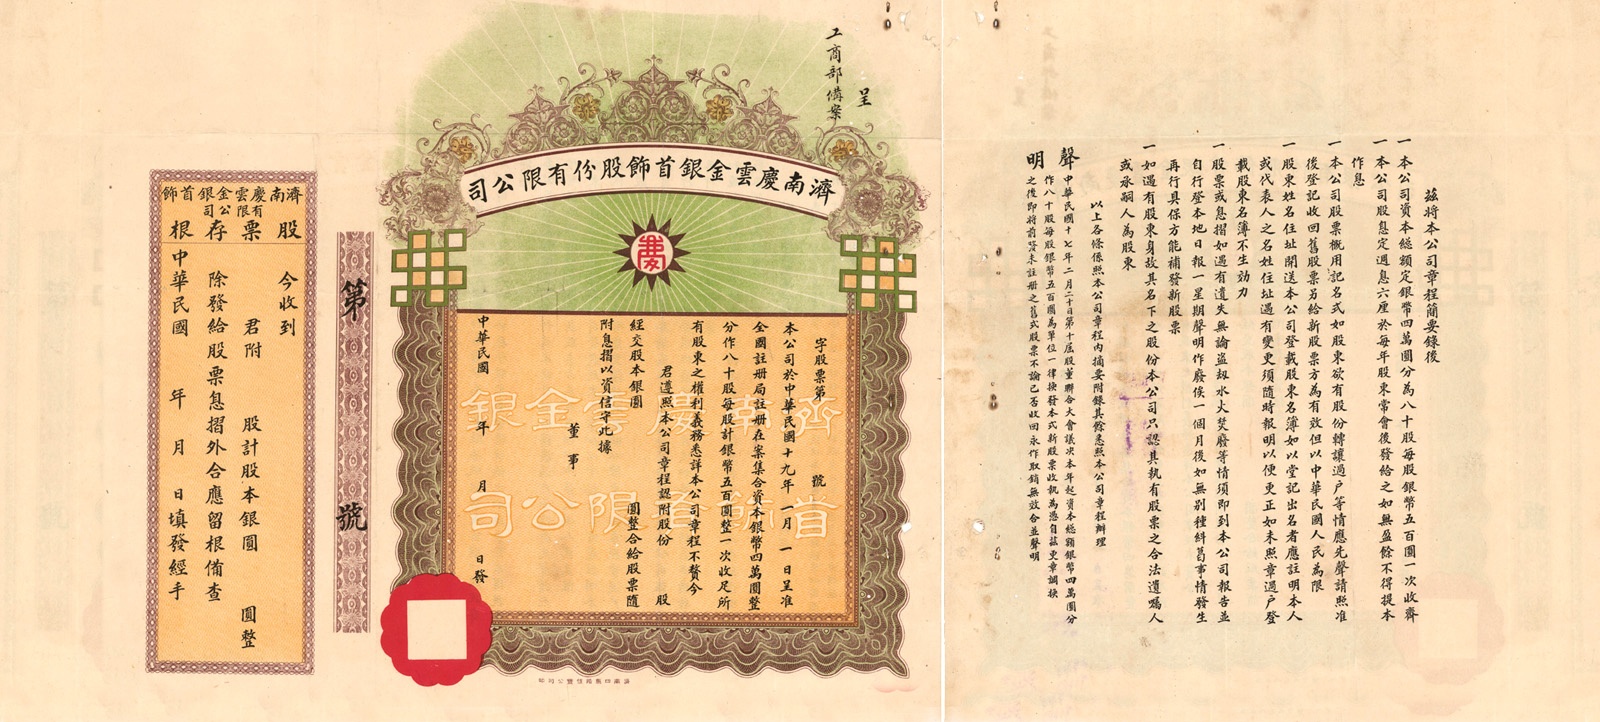 呈
工商部備案
濟南慶雲金銀首飾股份有限公司
慶
字股票第　號
本公司於中華民國十九年一月一日呈准
全國註册局註册在案集合資本銀幣四萬圓整
分作八十股每股計銀幣五百圓整一次收足所
有股東之權利義務悉詳本公司章程不贅今
君遵照本公司章程認附股份　股
經交股本銀圓　圓整合給股票隨
附息摺以資信守此據
董事
中華民國　年　月　日發
濟南慶雲金銀
首飾有限公司
第　號
濟南慶雲金銀首飾
有限公司
股票存根
今收到
君附　股計股本銀圓　圓整
除發給股票息摺外合應留根備查
中華民國　年　月　日填發經手
茲將本公司章程簡要錄後
一本公司資本總額定銀幣四萬圓分為八十股每股銀幣五百圓一次收齊
一本公司股息定週息六厘於每年股東常會後發給之如無盈餘不得提本
作息
一本公司股票概用記名式如股東欲有股份轉讓過戶等情應先聲請照准
後登記收回舊股票另給新股票方為有效但以中華民國人民為限
一股東姓名住址開送本公司登載股東名簿如以堂記出名者應註明本人
或代表人之名姓住址遇有變更須隨時報明以便更正如未照章過戶登
載股東名簿不生効力
一股票或息摺如遇有遺失無論盜刼水火焚廢等情須即到本公司報告並
自行登本地日報一星期聲明作廢俟一個月後如無别種糾葛事情發生
再行具保方能補發新股票
一如遇有股東身故其名下之股份本公司只認其執有股票之合法遺囑人
或承嗣人為股東
以上各條係照本公司章程內摘要附錄其餘悉照本公司章程辦理
聲明
中華民國十七年二月二十日第十屆股董聯合大會議决本年起資本總額銀幣四萬圓分
作八十股每股銀幣五百圓為單位一律換發本式新股票收執為憑自茲更章調換
之後即將前發未註册之舊式股票不論已否收回永作取銷無效合並聲明